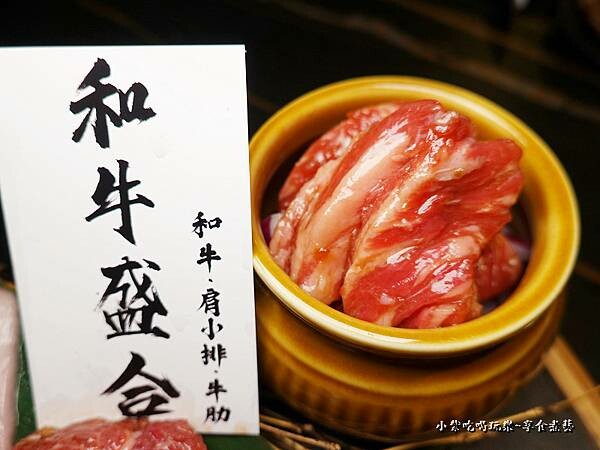 和牛盛合
和牛·肩小排·牛肋
小紫吃喝玩樂~享食煮藝